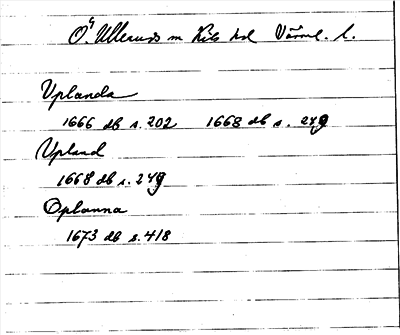 Ö. Ulleruds sn Kils hd Värml. l.
Uplanda
1666 db s. 202 1668 db s. 249
Upland
1668 db s. 249
Oplanna
1673 db s. 418